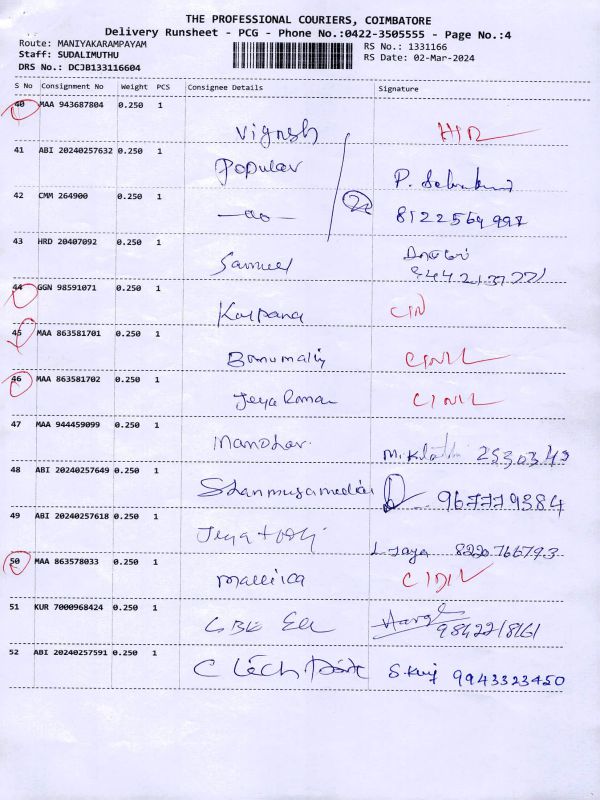 THE PROFESSIONAL COURIERS, COIMBATORE
Delivery Runsheet - PCG - Phone No.:0422-3505555 - Page No.:4
Route: MANIYAKARAMPAYAM
Staff: SUDALIMUTHU
DRS No.: DCJB133116604
RS No.: 1331166
RS Date: 02-Mar-2024
S No Consignment No Weight PCS Consignee Details Signature
40 MAA 943687804 0.250 1
Vignesh
41 ABI 20240257632 0.250 1
Popular
42 CMM 264900 0.250 1
-do- 8122564997
43 HRD 20407092 0.250 1
Samuel
44 GGN 98591071 0.250 1
Kalpana
45 MAA 863581701 0.250 1
46 MAA 863581702 0.250 1
47 MAA 944459099 0.250 1
Manohar. 2530343
48 ABI 20240257649 0.250 1
9677779384
49 ABI 20240257618 0.250 1
L. Jaya 8220766793
50 MAA 863578033 0.250 1
Mallica
51 KUR 7000968424 0.250 1
9842218161
52 ABI 20240257591 0.250 1
9943323450